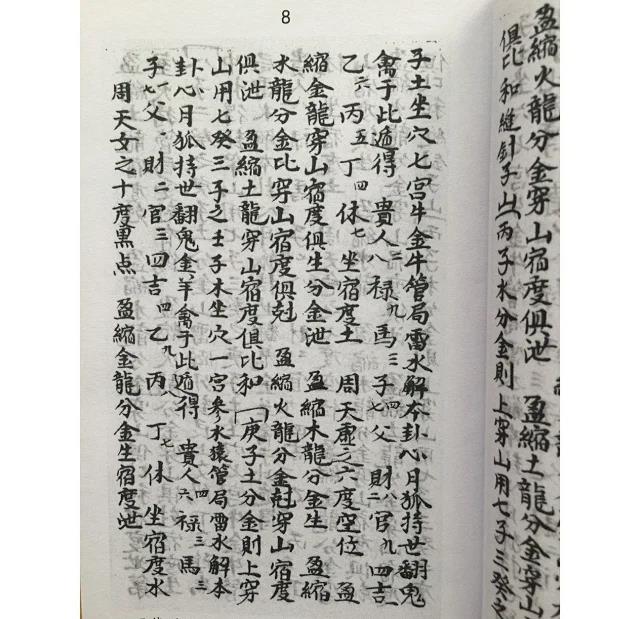 8
盈縮火龍分金穿山宿度俱泄 盈縮土龍分金穿山
俱比和縫針子山(丙子水分金則上穿山用七子三癸之
子土坐穴七宮牛金牛管局雷水解本卦心月狐持世翻鬼
禽子此遁得 貴人八二祿九馬三子七父四財二八官九四吉
乙六丙五丁四休七坐宿度土 周天虛之六度空位 盈
縮金龍穿山宿度俱生分金泄 盈縮木龍分金生 盈縮
水龍分金比穿山宿度俱剋 盈縮火龍分金剋穿山宿度
俱泄 盈縮土龍穿山宿度俱比和「庚子土分金則上穿
山用七癸三子之士子木坐穴一宮參水猿管局雷水解本
卦心月狐持世翻鬼金羊禽子此遁得 貴人六四祿三馬三
子七父財二官三四吉四乙九丙八丁七休 坐宿度水
周天女之十度黑点 盈縮金龍分金生宿度泄